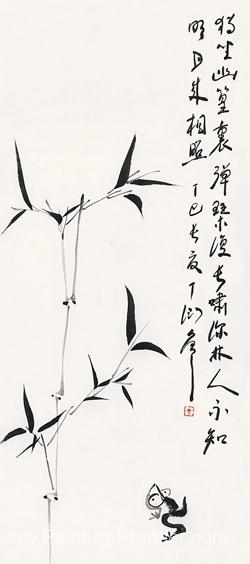 独坐幽篁裏彈琴復長嘯深林人不知
明月来相照丁巳長夏丁衍庸